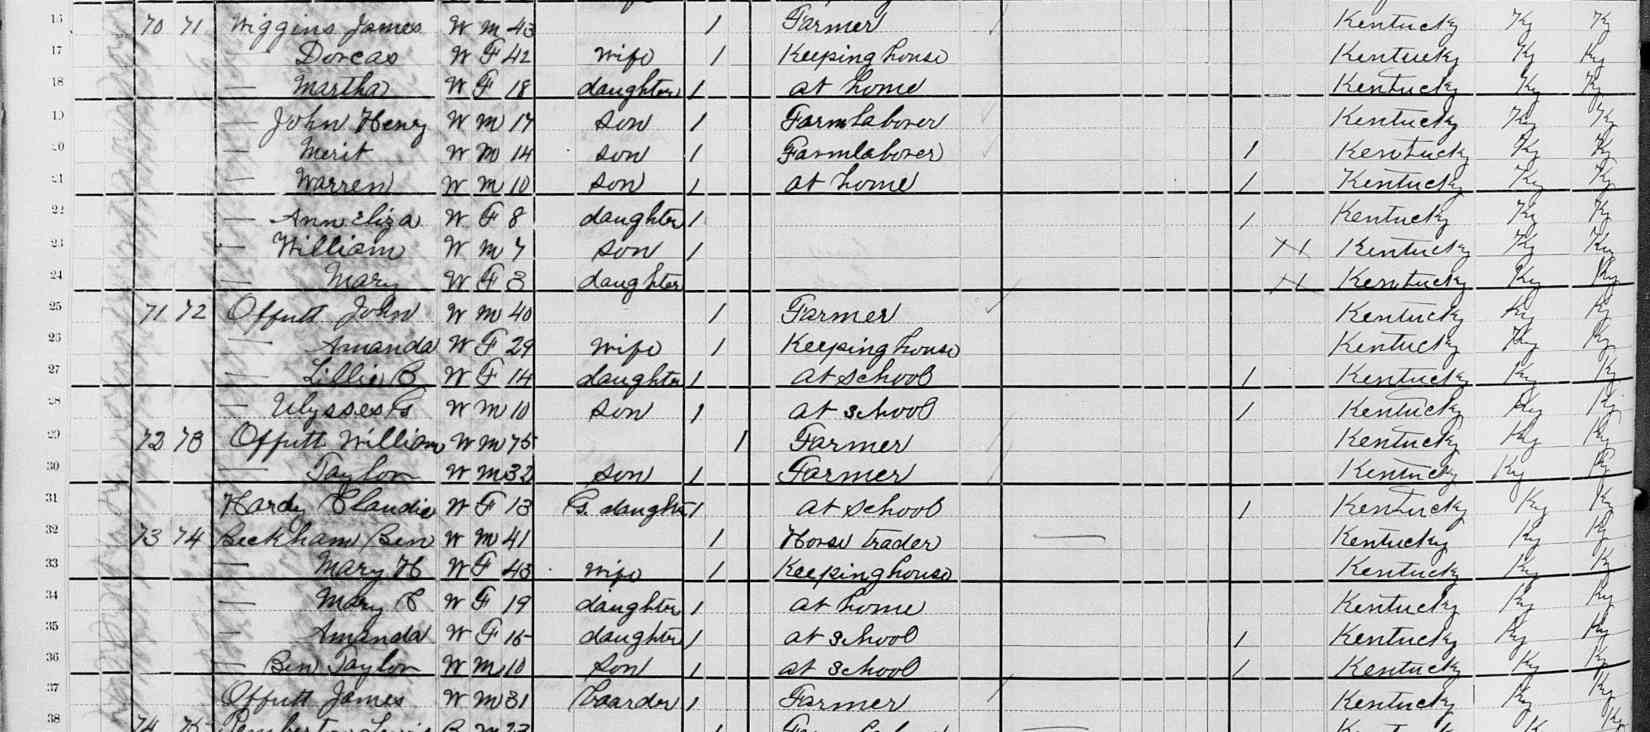 16 70 71 Wiggins James W M 43 1 Farmer Kentucky Ky Ky
17 Dorcas W F 42 Wife 1 Keeping house Kentucky Ky Ky
18 — Martha W F 18 daughter 1 at home Kentucky Ky Ky
19 — John Henry W M 17 Son 1 Farmlaborer Kentucky Ky Ky
20 — Merit W M 14 Son 1 Farmlaborer 1 Kentucky Ky Ky
21 — Warren W M 10 Son 1 at home 1 Kentucky Ky Ky
22 — Ann Eliza W F 8 daughter 1 1 Kentucky Ky Ky
23 — William W M 7 Son 1 Kentucky Ky Ky
24 — Mary W F 3 daughter Kentucky Ky Ky
25 71 72 Offutt John W M 40 1 Farmer Kentucky Ky Ky
26 — Amanda W F 29 Wife 1 Keeping house Kentucky Ky Ky
27 — Lillie B W F 14 daughter 1 at school 1 Kentucky Ky Ky
28 — Ulysses G W M 10 Son 1 at school 1 Kentucky Ky Ky
29 72 73 Offutt William W M 75 1 Farmer Kentucky Ky Ky
30 — Taylor W M 32 Son 1 Farmer Kentucky Ky Ky
31 Hardy Claudie W F 13 G. daughter 1 at school 1 Kentucky Ky Ky
32 73 74 Beckham Ben W M 41 1 Horse trader — Kentucky Ky Ky
33 — Mary H W F 43 Wife 1 Keeping house Kentucky Ky Ky
34 — Mary C W F 19 daughter 1 at home Kentucky Ky Ky
35 — Amanda W F 15 daughter 1 at school 1 Kentucky Ky Ky
36 — Ben Taylor W M 10 Son 1 at school 1 Kentucky Ky Ky
37 Offutt James W M 31 boarder 1 Farmer Kentucky Ky Ky
38 74 75